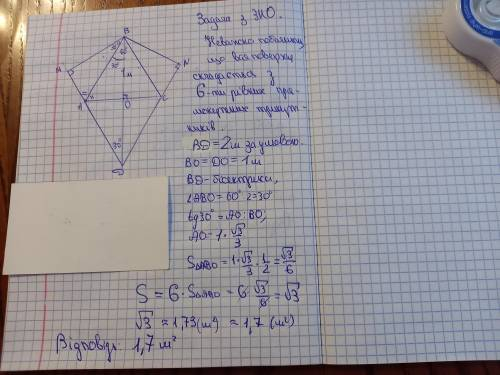 Задача з ЗНО.
Неважко побачити,
що вся поверхня
складається з
6-ти рівних пря-
мокутних трикут-
ників.
BD = 2м за умовою.
BO = DO = 1м
BD - бісектриса,
∠ABO = 60° : 2 = 30°
tg30° = AO : BO;
AO = 1 · √3/3
S△ABO = 1·√3/3 · 1/2 = √3/6
S = 6 · S△ABO = 6 · √3/6 = √3
√3 ≈ 1,73 (м²) ≈ 1,7 (м²)
Відповідь: 1,7 м²
B
M
N
A
C
O
1м
30°
D